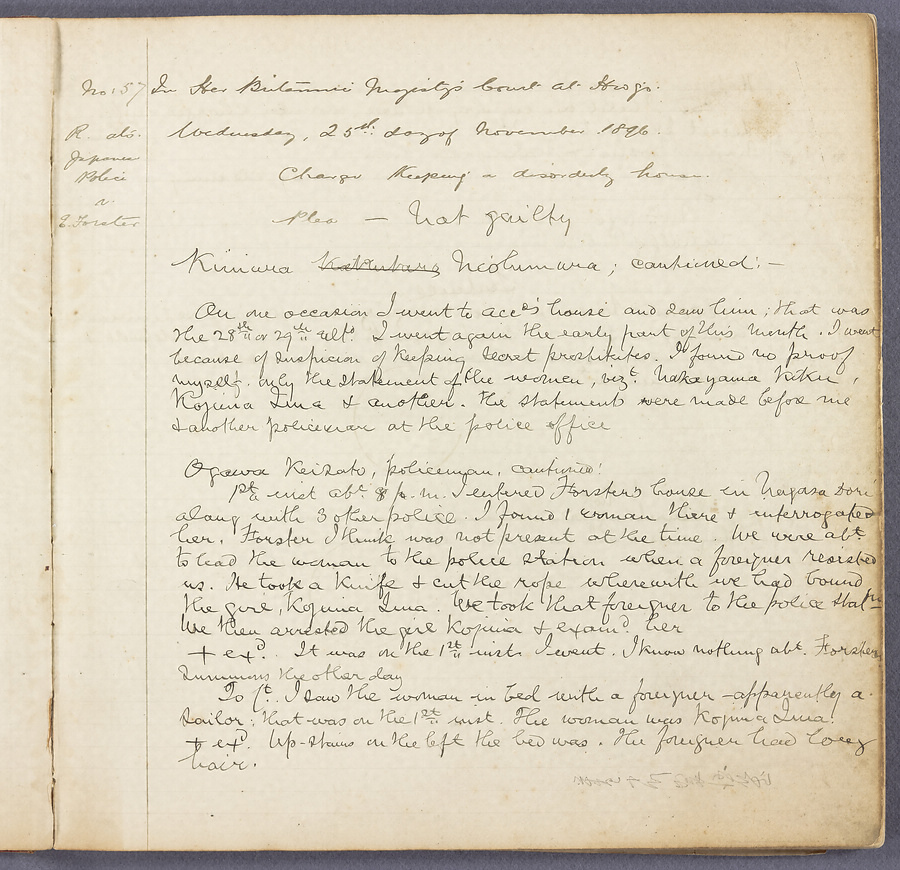 No 157
In Her Britannic Majesty's Court at Hiogo.
R. ats.
Japanese
Police
v.
E. Forster
Wednesday, 25th day of November 1896.
Charge Keeping a disorderly house.
Plea — Not guilty
Kimura Neohimura; cautioned:—
On one occasion I went to acc'd's house and saw him; that was
the 28th or 29th ulto. I went again the early part of this month. I went
because of suspicion of keeping secret prostitutes. I found no proof
myself. only the statement of the women, vizt. Nakayama Kiku,
Kojima Ima & another. The statements were made before me
& another policeman at the police office
Ogawa Keizato, policeman, cautioned:
1st inst abt. 8 p.m. I entered Forster's house in Nagasa Dori
along with 3 other police. I found 1 woman there & interrogated
her. Forster I think was not present at the time. We were abt.
to lead the woman to the police station when a foreigner resisted
us. He took a knife & cut the rope wherewith we had bound
the girl, Kojima Ima. We took that foreigner to the police statn
We then arrested the girl Kojima & examd. her
+ exd. It was on the 1st inst. I went. I know nothing abt. Forster's
summons the other day
To Ct. I saw the woman in bed with a foreigner – apparently a
sailor; that was on the 1st inst. The woman was Kojima Ima.
+ exd. Up-stairs on the left the bed was. The foreigner had long
hair.